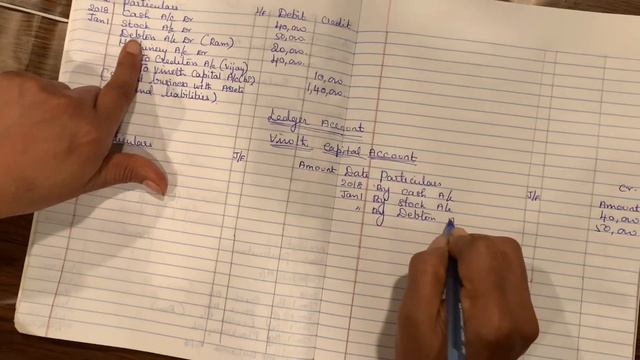 Particulars J/F Debit Credit
2018 Cash A/c Dr 40,000
Jan1 Stock A/c Dr 50,000
Debtors A/c Dr (Ram) 20,000
A/c Dr 40,000
To Creditors A/c (Vijay) 10,000
To Vinoth Capital A/c 1,40,000
business with Assets
and liabilities)
Ledger Account
Vinoth Capital Account
Cr.
J/F Amount Date Particulars J/F Amount
2018 By Cash A/c 40,000
Jan1 By Stock A/c 50,000
" By Debtors